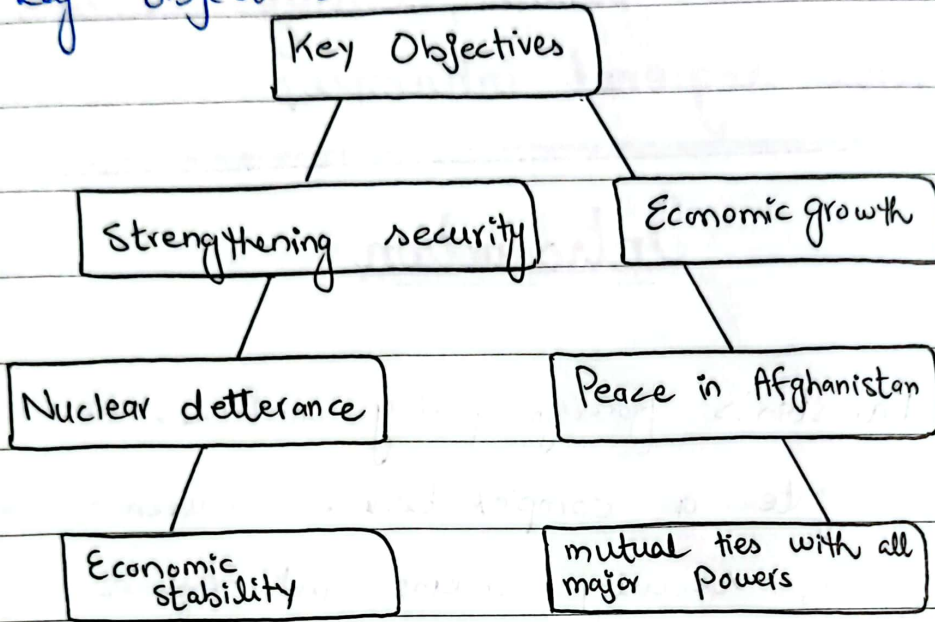 Key Objectives
Strengthening security
Economic growth
Nuclear detterance
Peace in Afghanistan
Economic
stability
mutual ties with all
major Powers